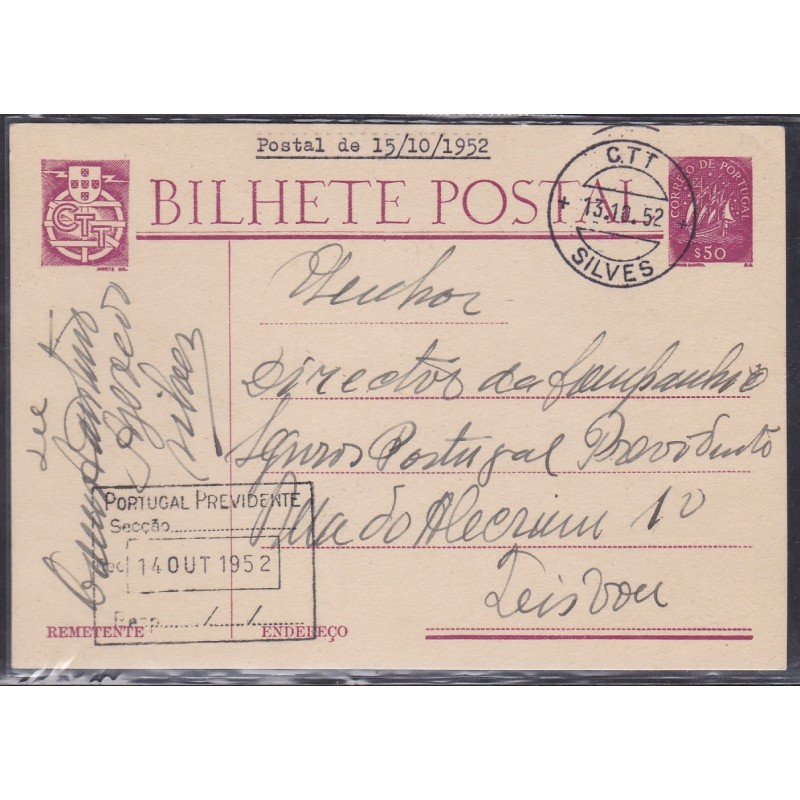 Postal de 15/10/1952
BILHETE POSTAL
CTT
CORREIO DE PORTUGAL
$50
C.T.T.
13.10.52
SILVES
Senhor
Director da Companhia
Seguros Portugal Previdente
Rua do Alecrim 10
Lisboa
Silves
PORTUGAL PREVIDENTE
Secção
Rec 14 OUT 1952
Resp / /
REMETENTE
ENDEREÇO